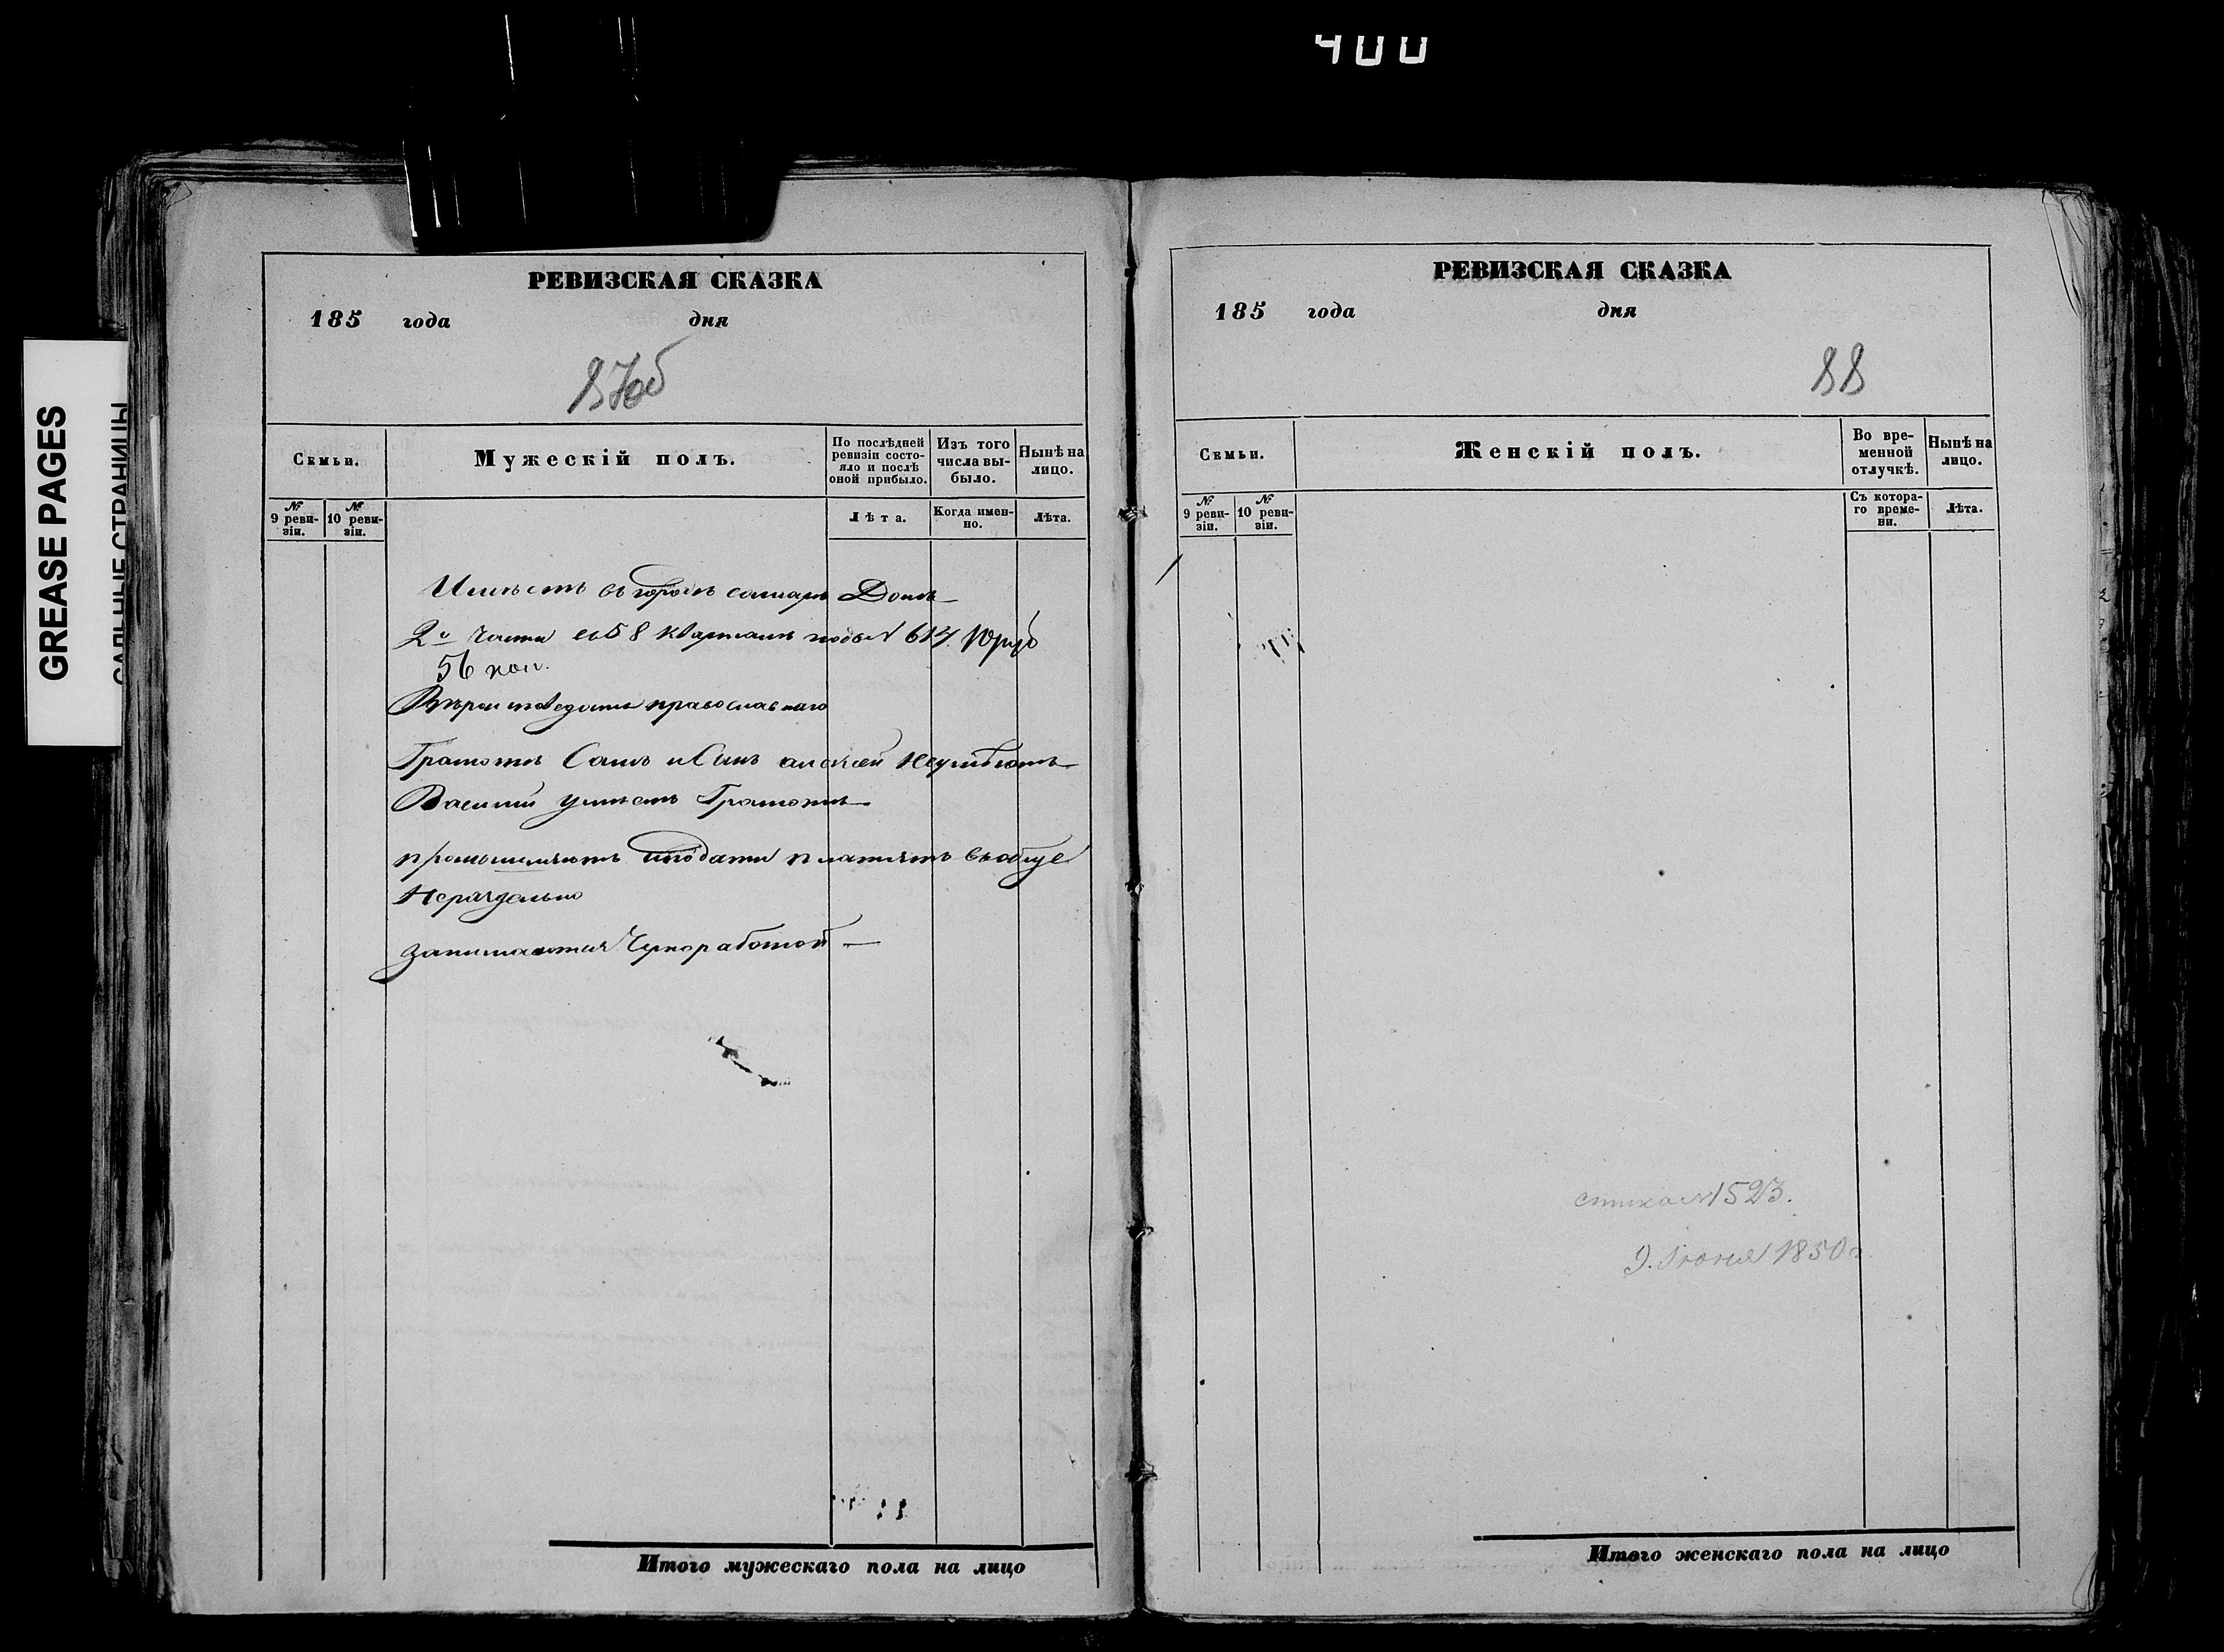 400
GREASE PAGES
САЛЬНЫЕ СТРАНИЦЫ
РЕВИЗСКАЯ СКАЗКА
185 года дня
87об
Семьи.
Мужескій полъ.
По послѣдней ревизіи состояло и послѣ оной прибыло.
Изъ того числа выбыло.
Нынѣ на лицо.
№ 9 ревизіи.
№ 10 ревизіи.
Лѣта.
Когда именно.
Лѣта.
Имѣетъ въ городѣ самаре Домъ
2й части въ 58 кварталѣ подъ № 614 10 руб
56 коп.
Вѣроисповеданія православнаго
Грамотѣ Самъ и Сынъ алексей Неумѣютъ
Василий умѣетъ Грамотѣ
промышляютъ и подати платятъ вьобще
Нераздельно
занимаются Черноработой
РЕВИЗСКАЯ СКАЗКА
185 года дня
88
Семьи.
Женскій полъ.
Во временной отлучкѣ.
Нынѣ на лицо.
№ 9 ревизіи.
№ 10 ревизіи.
Съ котораго времени.
Лѣта.
1523.
9. Июня 1850 г.
Итого мужескаго пола на лицо
Итого женскаго пола на лицо